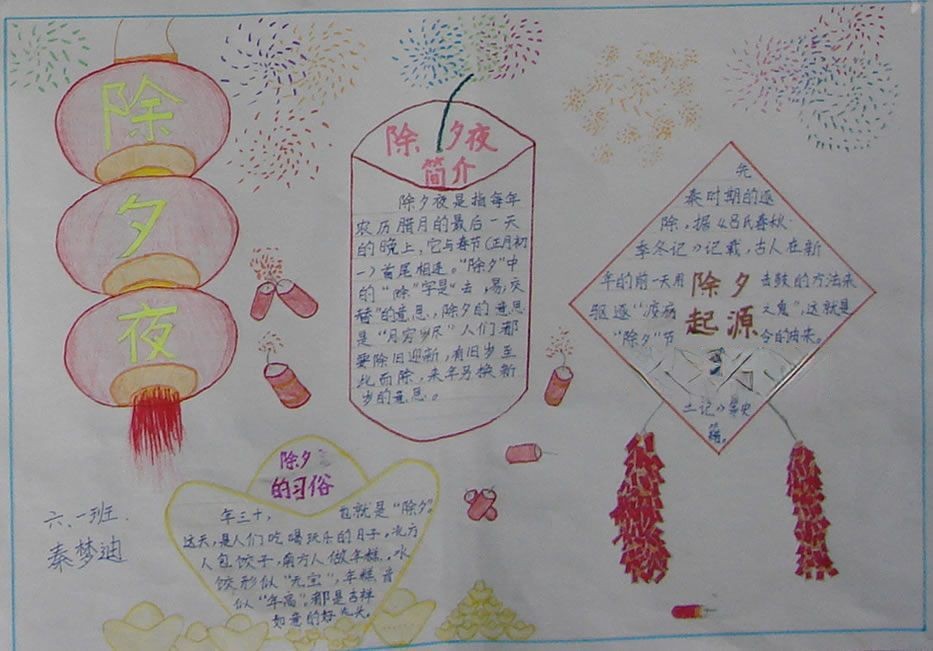 除
夕
夜
除夕夜
简介
除夕夜是指每年
农历腊月的最后一天
的晚上,它与春节(正月初
一)首尾相连。"除夕"中
的"除"字是"去,易,交
替"的意思,除夕的意思
是"月穷岁尽"人们都
要除旧迎新,有旧岁至
此而除,来年另换新
岁的意思。
先
秦时期的逐
除,据《吕氏春秋·
季冬记》记载,古人在新
年的前一天用
击鼓的方法来
驱逐"疫疠
之鬼",这就是
"除夕"节
令的由来。
除夕
起源
土记》等史
籍。
除夕
的习俗
年三十, 也就是"除夕"。
这天,是人们吃喝玩乐的日子。北方
人包饺子,南方人做年糕。水
饺形似"元宝",年糕音
似"年高"。都是吉祥
如意的好兆头。
六.一班.
秦梦迪